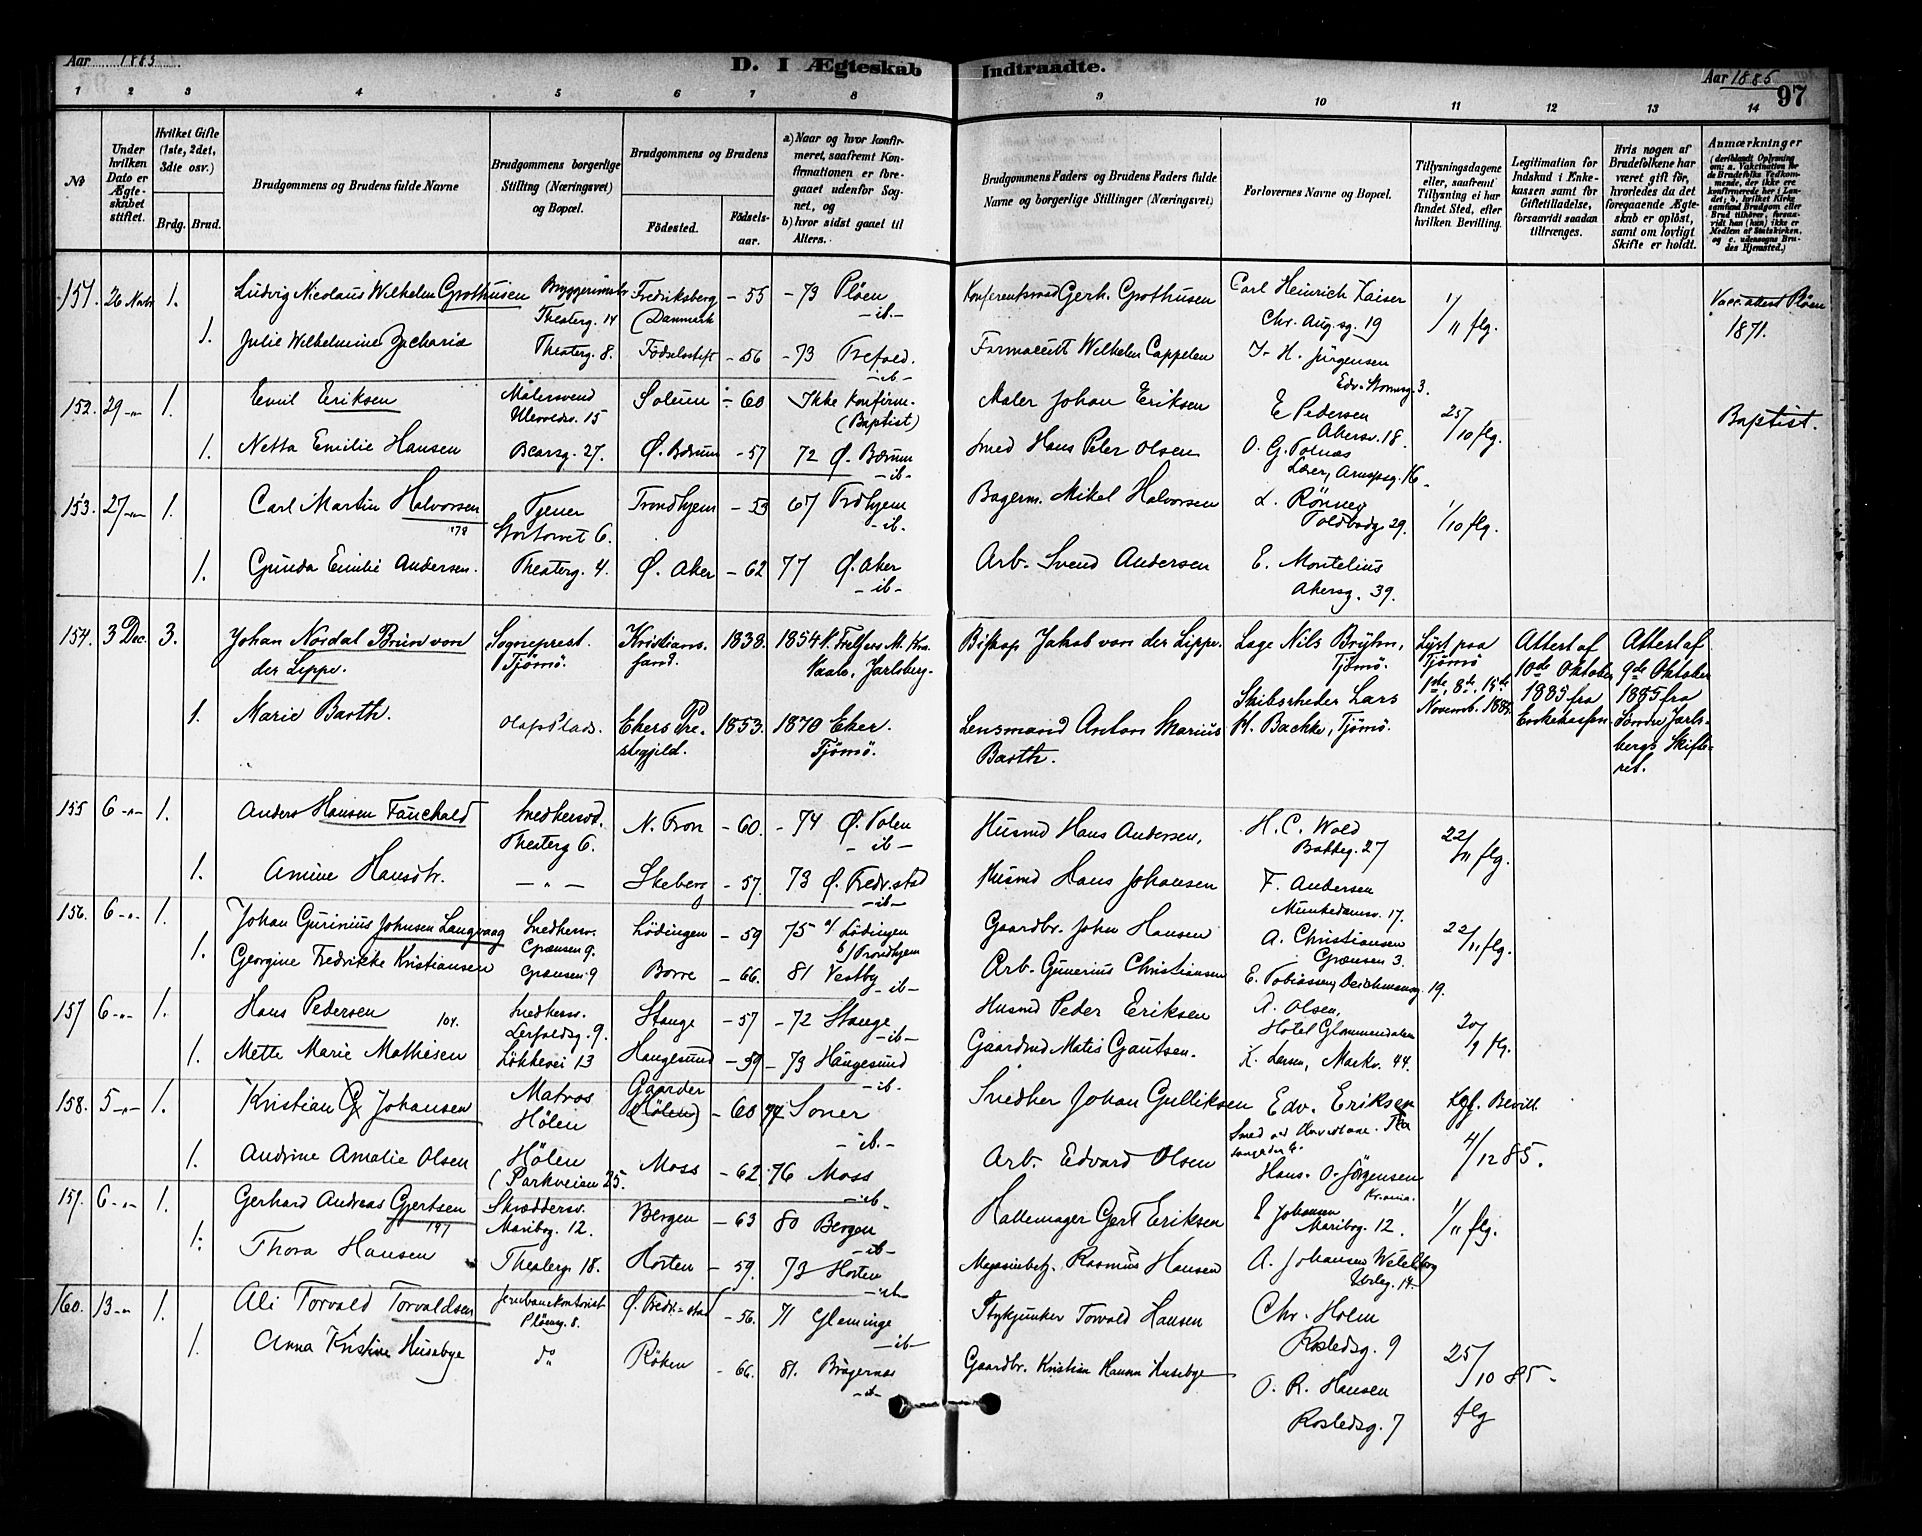 Aar 1885
D. I Ægteskab Indtraadte.
Aar 1885
97
1 2 3 4 5 6 7 8 9 10 11 12 13 14
No
Under hvilken Dato er Ægteskabet stiftet.
Hvilket Gifte (1ste, 2det, 3die osv.)
Brdg. Brud.
Brudgommens og Brudens fulde Navne
Brudgommens borgerlige Stilling (Næringsvei) og Bopæl.
Brudgommens og Brudens
Födested.
Födselsaar.
a) Naar og hvor konfirmeret, saafremt Konfirmationen er foregaaet udenfor Sognet, og
b) hvor sidst gaaet til Alters.
Brudgommens Faders og Brudens Faders fulde Navne og borgerlige Stillinger (Næringsvei)
Forlovernes Navne og Bopæl.
Tillysningsdagene eller, saafremt Tillysning ei har fundet Sted, efter hvilken Bevilling.
Legitimation for Indskud i Enkekassen samt for Giftetilladelse, forsaavidt saadan tiltrænges.
Hvis nogen af Brudefolkene har været gift för, hvorledes da det foregaaende Ægteskab er oplöst, samt om lovligt Skifte er holdt.
Anmærkninger
151. 26 Novbr 1. Ludvig Nicolaus Wilhelm Grothusen Theaterg. 14 Fredriksberg (Danmark - 55 - 73 Pløen -ib.- Konferentsraad Gerh. Grothusen Carl Heinrich Kaiser Chr. Aug. sg. 19 1/11 flg. Vacc. attest Pløen 1871.
1. Julie Wilhelmine Zachariæ Theaterg. 8. Födselsstift - 56 - 73 Trefold. -ib- Farmaceut Wilhelm Cappelen H. Jürgensen Edv. Stormsg. 3.
152. 29 -"- 1. Emil Eriksen Malersvend Ullevoldsv. 15 Solum - 60 Ikke Konfirm. (Baptist) Maler Johan Eriksen E Pedersen Akersv. 18. 25/10 flg. Baptist.
1. Netta Emilie Hansen 27. Ø. Bærum - 57 72 Ø. Bærum -ib- Smed Hans Peter Olsen O. G. 16
153. 27 -"- 1. Carl Martin Halvorsen 178 Tjener Stortorvet 6. Trondhjem - 53 67 Trdhjem -ib. Bagerm. Mikal Halvorsen L. Rönney Toldbodg. 29. 1/10 flg.
1. Gunda Emilie Andersen. Theaterg. 4. Ø. Aker - 62 77 Ø. Aker -ib- Arb. Svend Andersen E. Montelius Akersg. 39.
154. 3 Dec. 3. Johan Nordal Brun von der Lippe. Sogneprest. Tjømø. Kristianssand. 1838. 1854 V. Frelsers M. Kra. Vaale, Jarlsberg. Biskop Jakob von der Lippe. Læge Nils Bryhn, Tjømø. Lyst paa Tjømø 1ste, 8de, 15de Novemb. 1885. Attest af 10de Oktober 1885 fra Enkekassen Attest af 9de Oktober 1885 fra Søndre Jarlsbergs Skifteret.
1. Marie Barth. Olafs Plads. Ekers Præstegjeld. 1853. 1870 Eker. Tjømø. Lensmand Anton Marius Barth. Skibsrheder Lars H. Bache, Tjømø.
155 6 -"- 1. Anders Hansen Fauchald Snedkersvd. Theaterg 6. N. Fron - 60. - 74 Ø. Toten -ib- Husmd Hans Andersen, H. C. Wold Bakkeg. 27 22/11 flg.
1. Amine Hansdtr. - " - Skeberg - 57. 73 Ø. Fredr.stad -ib- Husmd Hans Johansen F. Andersen Munkedamsv. 17.
156. 6 -"- 1. Johan Gurinius Johnsen Langvaag Snedkersv. Grænsen 9. Lödingen - 59 75 a/ Lödingen b/ Trondhjem Gaardbr. John Hansen A. Christiansen Grænsen 3. 22/11 flg.
1. Georgine Fredrikke Kristiansen Grænsen 9 Borre - 66. 81 Vestby -ib- Arb. Gunerius Christiansen E. Tobiassen, Deichmansg 19.
157 6 -"- 1. Hans Pedersen 104. Snedkersv. Lerfaldsg. 9. Stange - 57 - 72 Stange -ib- Husmd Peder Eriksen A. Olsen, Hotel Glommendalen 20/9 flg.
1. Mette Marie Mathisen Løkkevei 13 Haugesund - 59 - 73 Haugesund -ib. Gaardmd Matis Gautsen. K. Larsen, Markv. 44.
158. 5 -"- 1. Kristian G. Johansen Matros Hölen Gaarder (Hölen) - 60 77 Soner -ib.- Snedker Johan Gulliksen Edv. Eriksen Kgl. Bevill. 4/12 85.
1. Andrine Amalie Olsen Hölen (Parkveien 25. Moss - 62. 76 Moss -ib- Arb. Edvard Olsen Hans. O. Jörgensen Kr.ania.
159. 6 -"- 1. Gerhard Andreas Gjertsen 191 Skræddersv. Maribog. 12. Bergen - 63 80 Bergen -ib- Hattemager Gert Eriksen E Johansen Maribog. 12. 1/11 flg.
1. Thora Hansen Theaterg. 18. Horten - 59. 73 Horten -ib- Rasmus Hansen A. Johansen 14.
160. 13 -"- 1. Ali Torvald Torvaldsen Jernbanekontorist 8. Ø. Fredr.stad - 56. 71 Gleminge -ib- Stykjunker Torvald Hansen Chr. Holm Rosteds g. 9 25/10 85. flg
1. Anna Kristine Husebye do Röken - 66. 81. Bragernæs -ib- Gaardbr. Kristian Hansen Husebye O. R. Hansen Rosteds g. 7